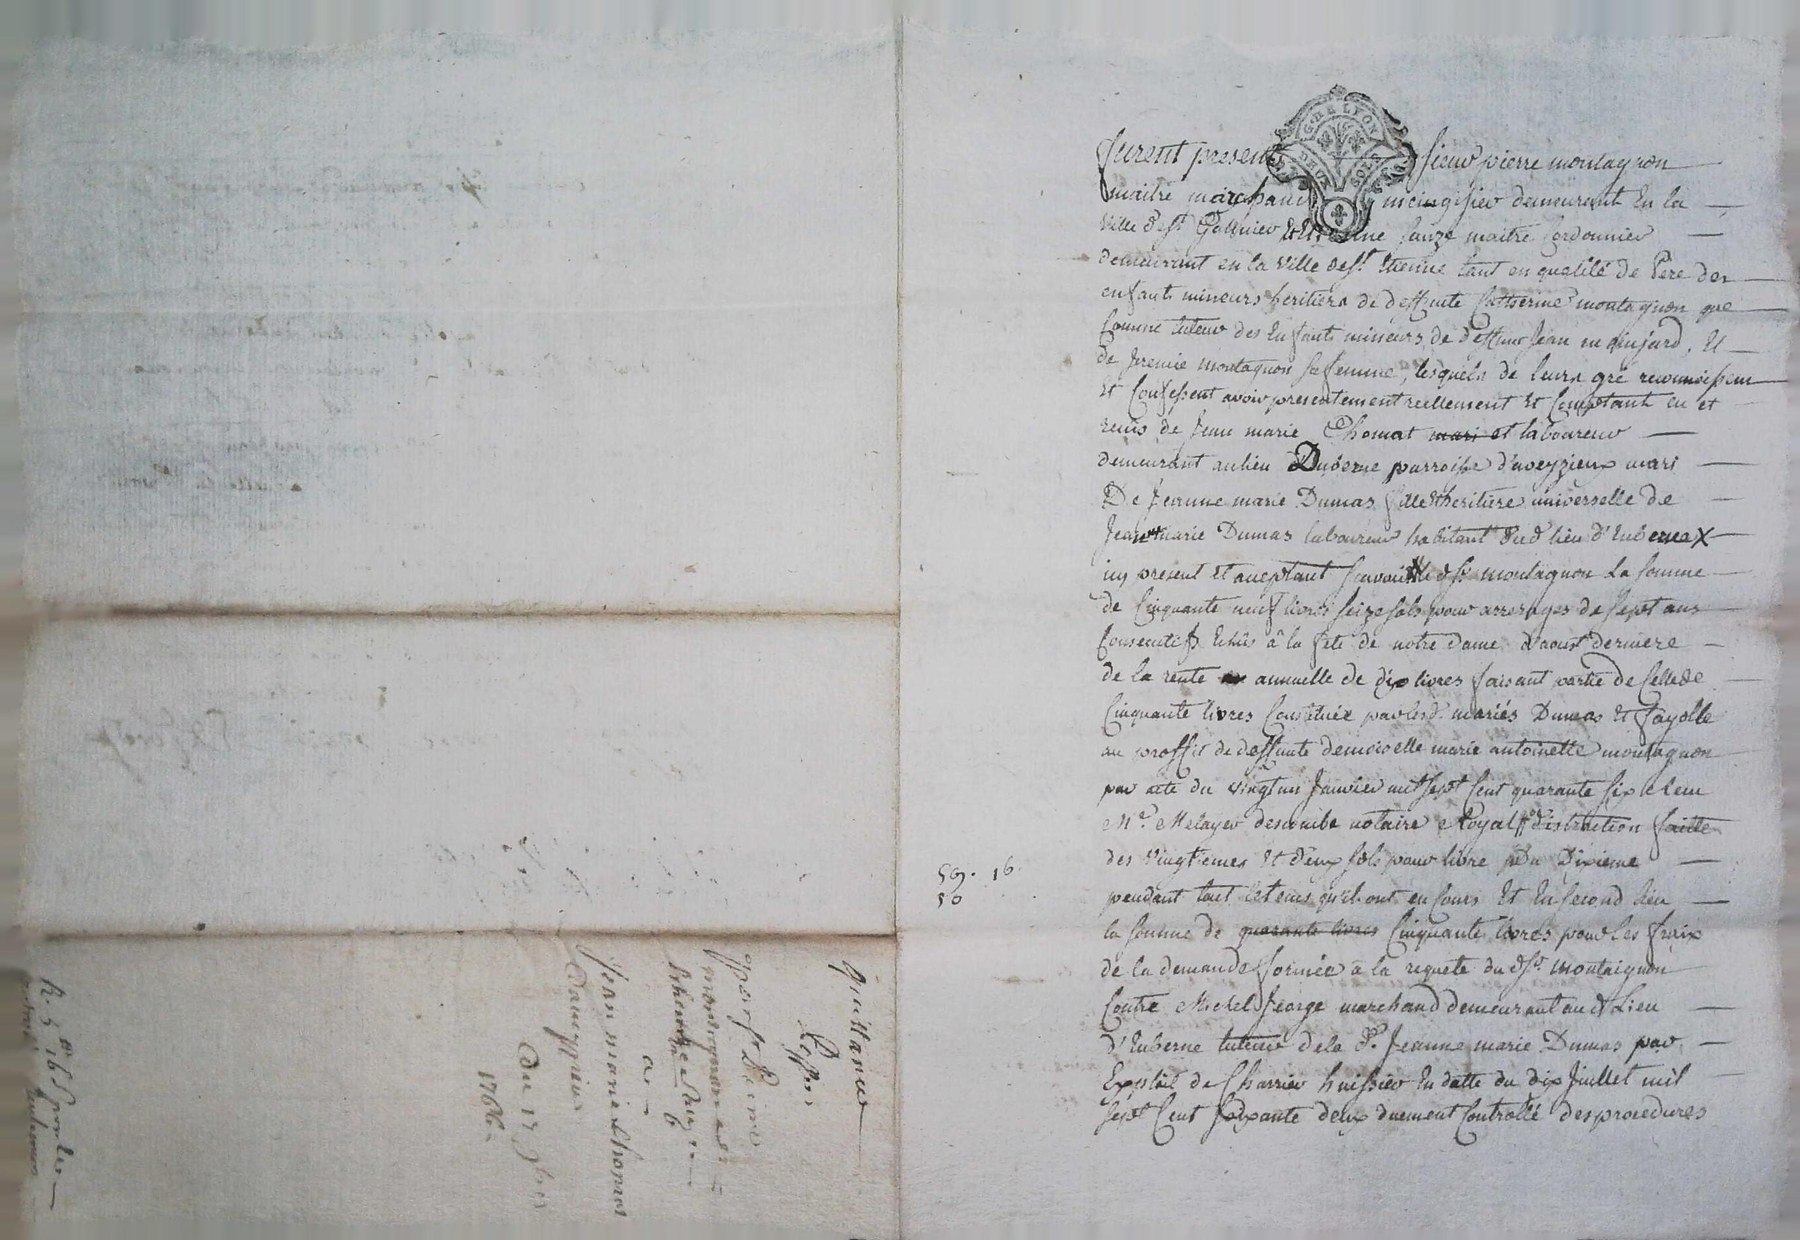 G. DE LYON
DEUX SOLS
furent present sieur pierre montagnon
maitre marchand demeurant En la
ville de st Galmier Et Etienne Sauze maitre Cordonnier
demeurant en la ville de st. Etienne tant en qualité de Pere des
enfants mineurs heritiers de deffunte Catherine montagnon que
Comme tuteur des Enfants mineurs de deffunt Jean Et
de montagnon sa femme, lesquels de leurs gré reconnoissent
Et Confessent avoir presentement reellement Et Comptant eu et
recus de Jean marie Thomat mari et laboureur
demeurant au lieu Duberne parroisse d'aveyzieux mari
De Jeanne marie Dumas fille et heritiere universelle de
Jean marie Dumas laboureur habitant dud lieu d'Euberne
icy present Et aceptant scavoir le dsr montagnon La somme
de Cinquante neuf livres seize sols pour arrerages de sept ans
Consecutifs Echûs à la fete de notre dame d'aoust derniere
de la rente annuelle de dix livres faisant partie de Celle de
Cinquante livres Constituée par lesd. mariés Dumas Et fayolle
au proffit de deffunte demoiselle marie antoinette montagnon
par acte du vingt un Janvier mil sept Cent quarante six
Me. notaire Royal distraction faitte
des vingtiemes Et deux sols pour livre Du Dixieme
pendant tout le tems qu'ils ont eu Cours Et En second lieu
la somme de quarante livres Cinquante livres pour les fraix
de la demande formée à la requete du dsr. montaignon
Contre Michel George marchand demeurant aud Lieu
d'Euberne tuteur de la de. Jeanne marie Dumas par
Exploit de Charrier huissier En datte du dix Juillet mil
sept Cent soixante deux duement Controllé des procedures
59. 16
50
quittance
pour sr Pierre
montagnon et
Etienne Sauze
a
Jean marie thomat
Daveyzieu
Du 17 9bre
1766